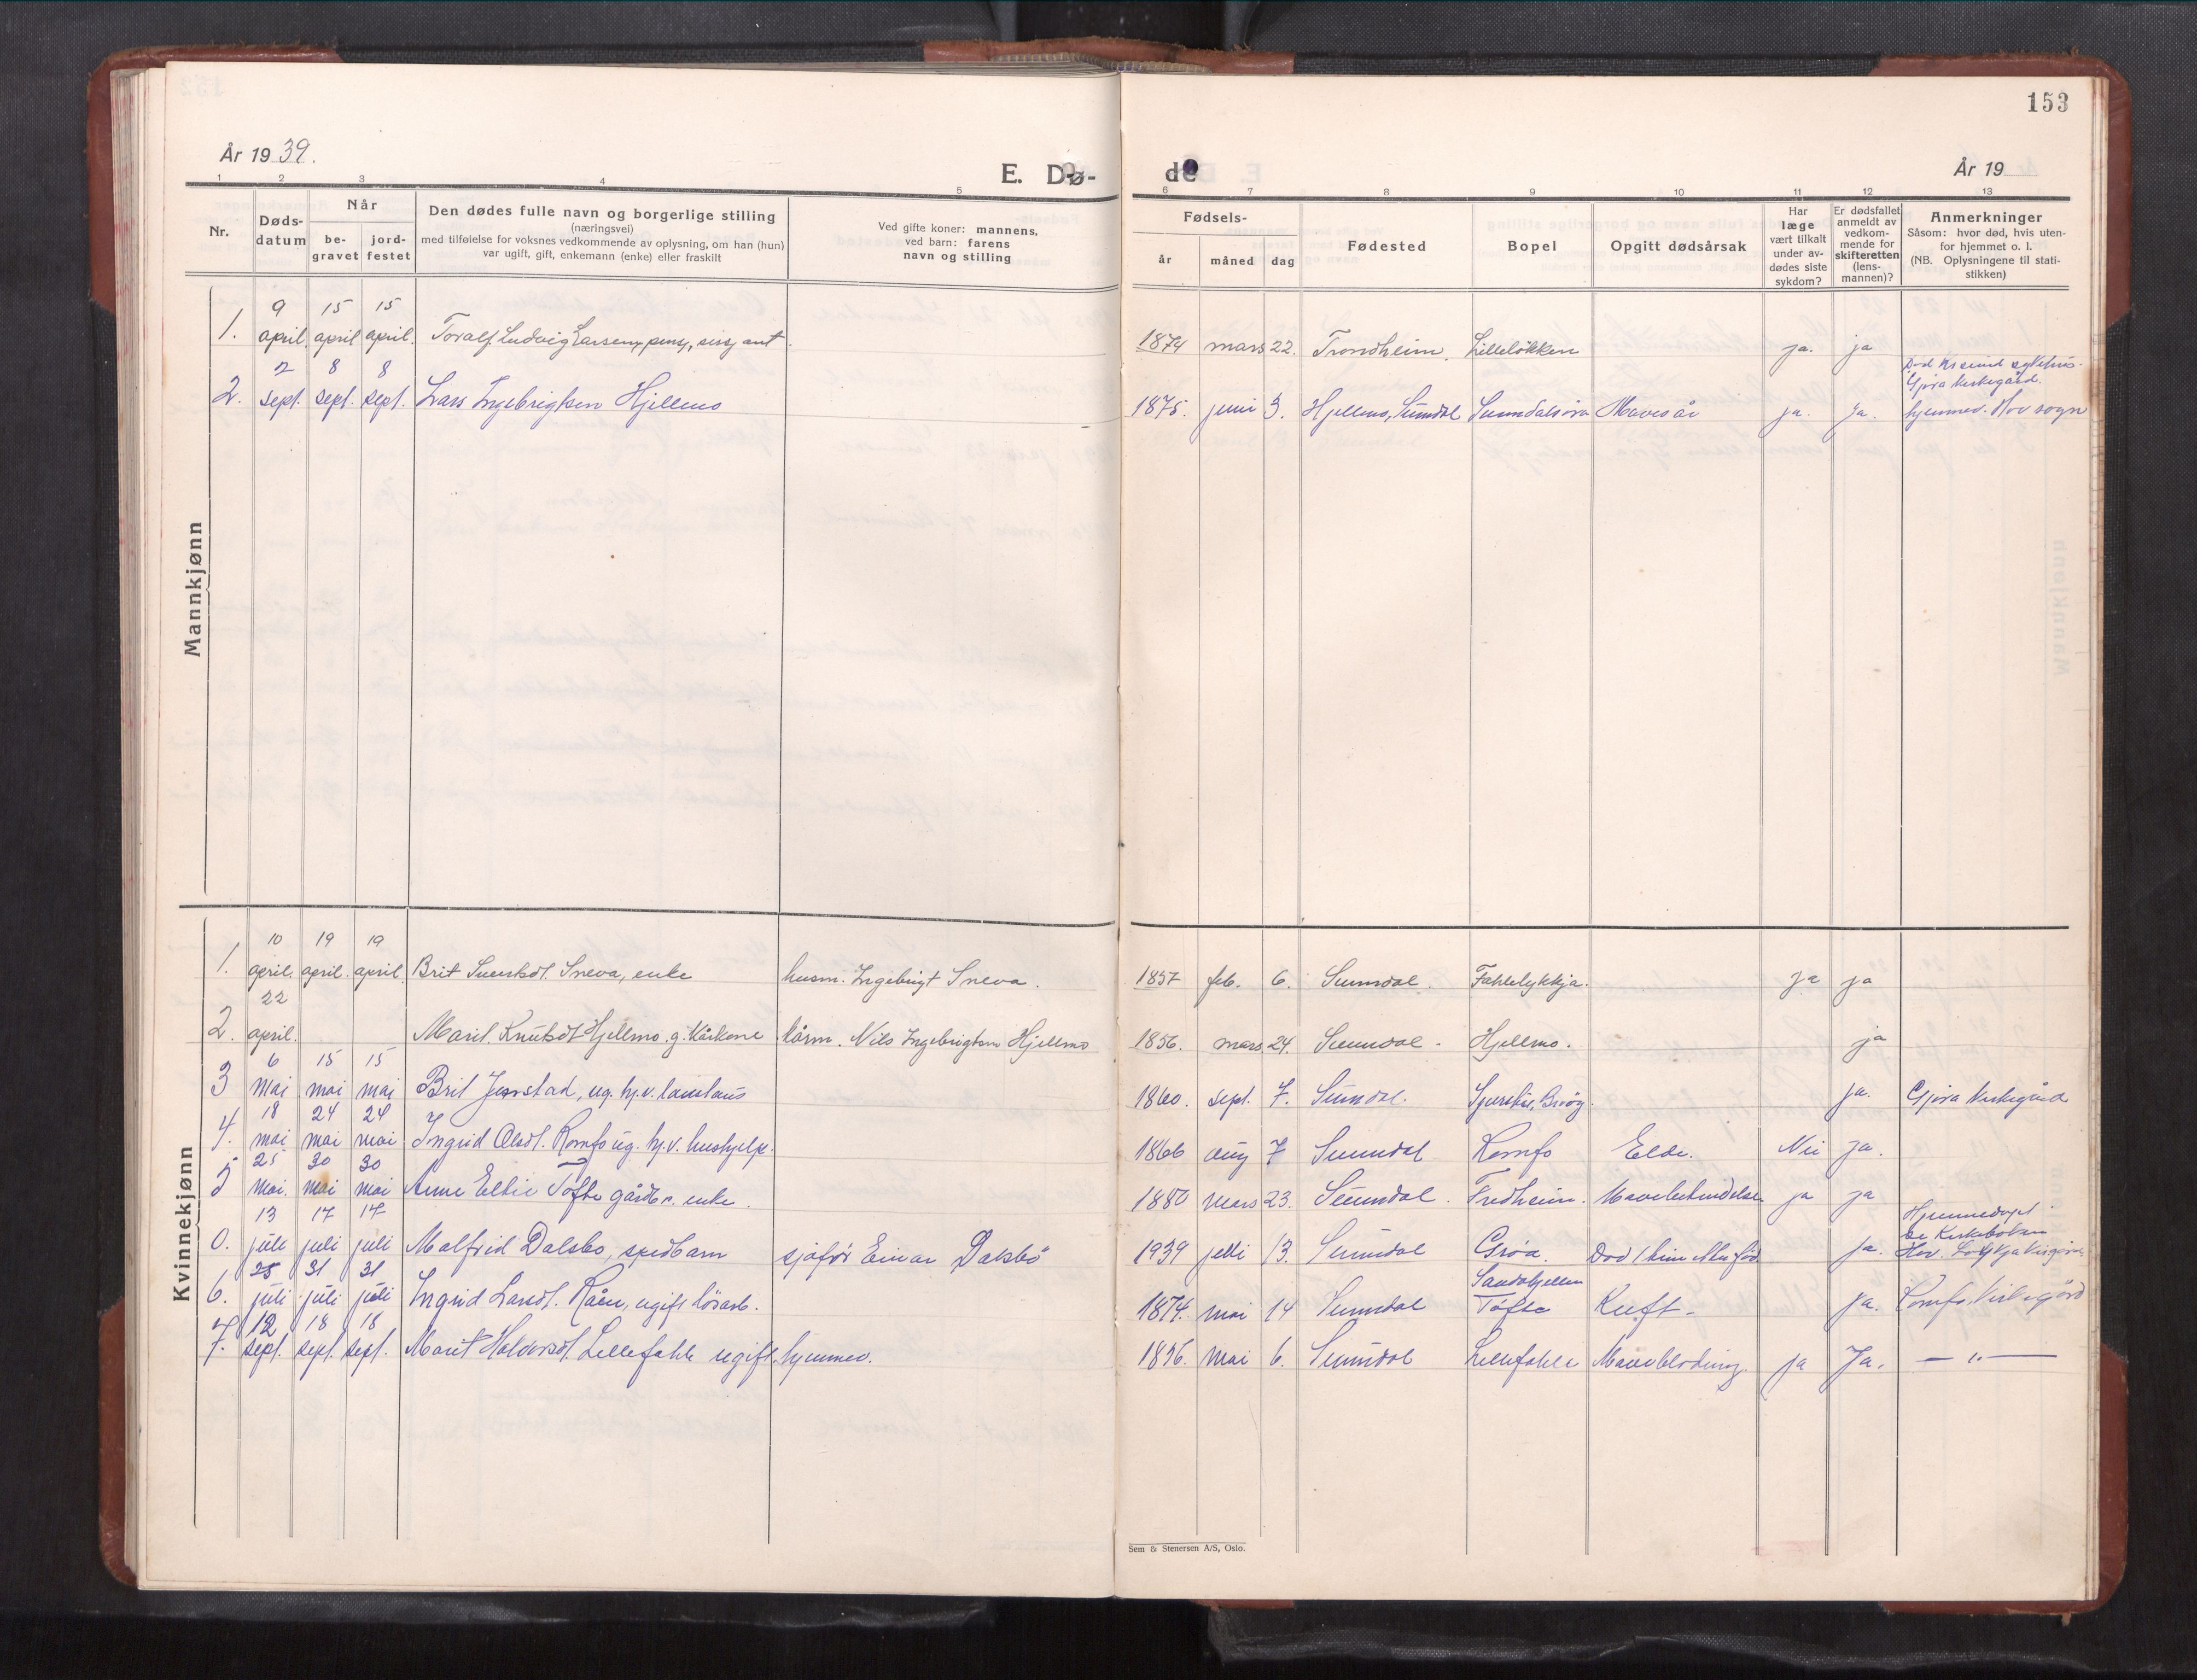 153
År 1939.
E. Dø-
de
År 19
1 2 3 4 5 6 7 8 9 10 11 12 13
Nr.
Døds-
datum
Når
be-
gravet
jord-
festet
Den dødes fulle navn og borgerlige stilling
(næringsvei)
med tilføielse for voksnes vedkommende av oplysning, om han (hun)
var ugift, gift, enkemann (enke) eller fraskilt
Ved gifte koner: mannens,
ved barn: farens
navn og stilling
Fødsels-
år måned dag
Fødested
Bopel
Opgitt dødsårsak
Har
læge
vært tilkalt
under av-
dødes siste
sykdom?
Er dødsfallet
anmeldt av
vedkom-
mende for
skifteretten
(lens-
mannen)?
Anmerkninger
Såsom: hvor død, hvis uten-
for hjemmet o. l.
(NB. Oplysningene til stati-
stikken)
Mannkjønn
9 15 15
1. april. april april. Toralf Ludvig Larsen, pens, 1874 mars 22. Trondheim. Lilleløkken ja. ja
2 8 8 Død Kr.sund sykehus.
Gjøra kirkegård.
2. sept. sept. sept. Lars Ingebrigtsen Hjellmo 1875. juni 3. Hjellmo, Sunndal Sunndalsøra Mavesår ja. Ja. hjemmev. Hov sogn
Kvinnekjønn
10 19 19
1. april. april. april. Brit Sneva, enke husm. Ingebrigt Sneva. 1857 feb. 6. Sunndal. Fahlelykkja. ja ja
22
2. april. Marit Knutsdt Hjellmo. g. Kårkone kårm. Nils Ingebrigtsen Hjellmo 1856. mars 24. Sunndal. Hjellmo. ja
6 15 15
3 mai mai mai Brit ug. hj.v. 1860. sept. 7. Sunndal. ja. Gjøra kirkegård
18 24 24
4. mai mai mai Ingrid Olsdt. Romfo ug. hj.v. hushjelp. 1866 aug 7 Sunndal Romfo Elde. Nei ja.
25 30 30
5 mai. mai mai Anne Tofte gårdbr. enke. 1880 mars 23. Sunndal. Fredheim. Mavebetendelse ja ja
13 17 17 Hjemmedøpt
se kirkeboken
0. juli juli juli Malfrid Dalsbø, spedbarn sjåfør Einar Dalsbø 1939 juli 13. Sunndal Grøa. ja. Hov.
25 31 31 Sandhjellen
6. juli juli juli Ingrid Larsdt. Råen, ugift løsarb. 1874. mai 14 Sunndal Tofte Kreft. ja. Romfo kirkegård
12 18 18
7. sept. sept. sept. Marit Halvorsdt. Lillefahle ugift. hjemmev. 1856. mai 6. Sunndal Lillefahle Maveblødning. ja Ja. — " —
Sem & Stenersen A/S, Oslo.